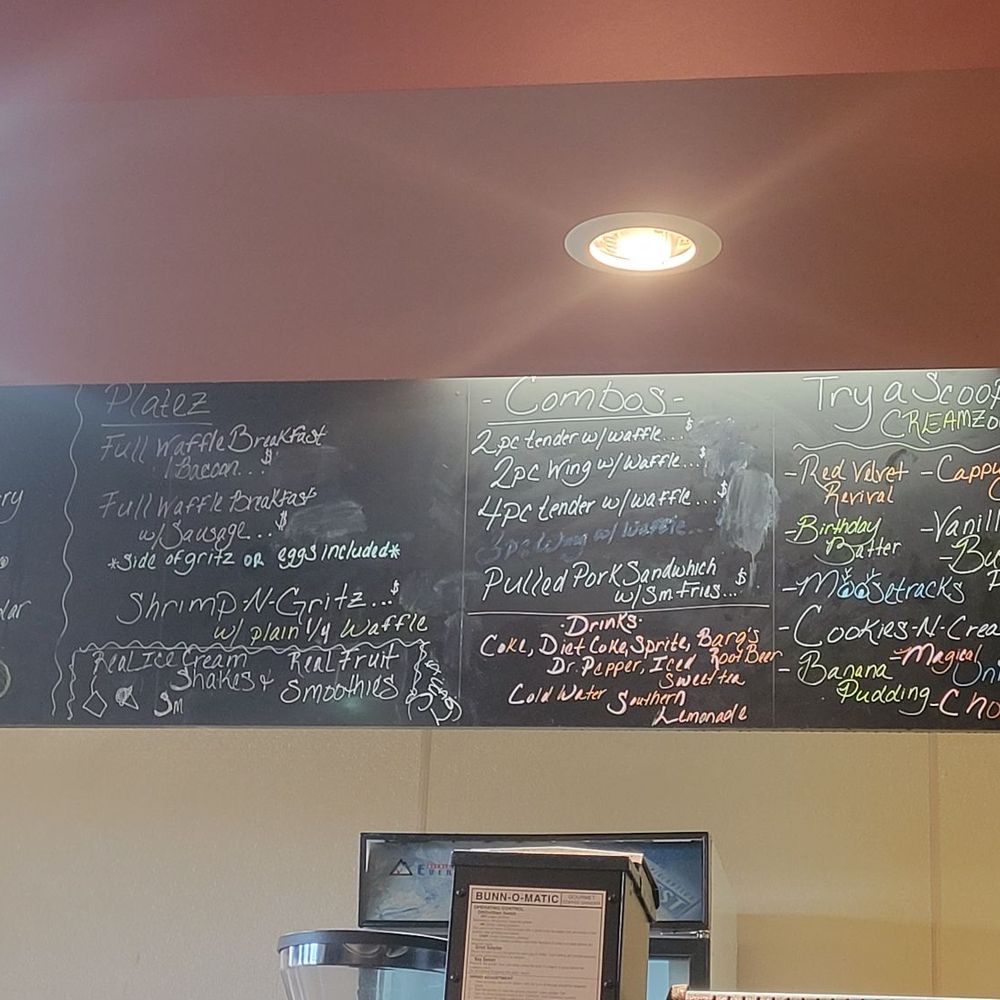 Platez
Full Waffle Breakfast
w/Bacon...$
Full Waffle Breakfast
w/Sausage...$
*Side of gritz OR eggs included*
Shrimp-N-Gritz...$
w/ plain 1/4 Waffle
Real Ice Cream
Shakes &
Sm
Real Fruit
Smoothies
-Combos-
2pc tender w/waffle...$
2pc Wing w/Waffle...$
4pc tender w/waffle...$
3pc Wing w/ waffle...
Pulled Pork Sandwhich
w/Sm Fries...$
-Drinks-
Coke, Diet Coke, Sprite, Barg's
Dr. Pepper, Iced Root Beer
Sweet tea
Cold Water Southern
Lemonade
Try a Scoop
CREAMZO
-Red Velvet
Revival
-Birthday
Batter
-Moosetracks
-Cookies-N-Crea
-Banana
Pudding
-Cappy
-Vanill
-Bu
-Magical
Uni
-Cho
ry
lar
BUNN-O-MATIC
GOURMET
OPERATING CONTROL